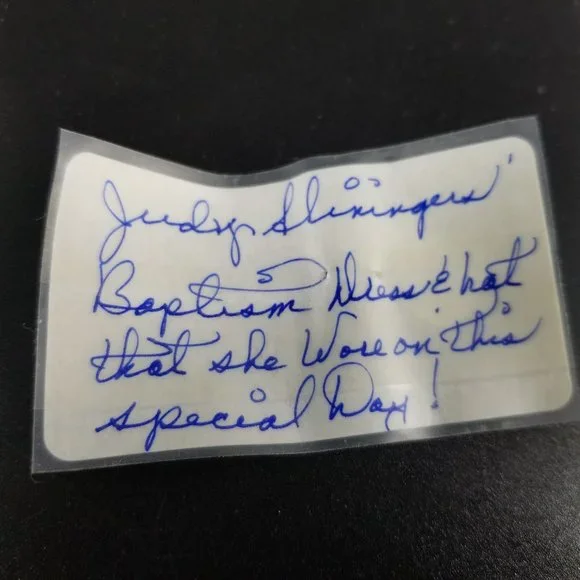 Judy Sliningers'
Baptism Dress & hat
that she Wore on this
special Day!